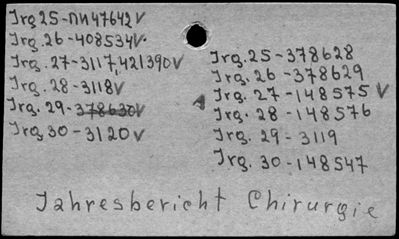 Jrg. 25-ПИ47642 V
Jrg. 26-408534 V.
Jrg. 27-3117,421390 V
Jrg. 28-3118 V
Jrg. 29-378630 V
Jrg. 30-3120 V
Jrg. 25-378628
Jrg. 26-378629
Jrg. 27-148575 V
Jrg. 28-148576
Jrg. 29-3119
Jrg. 30-148547
Jahresbericht Chirurgie